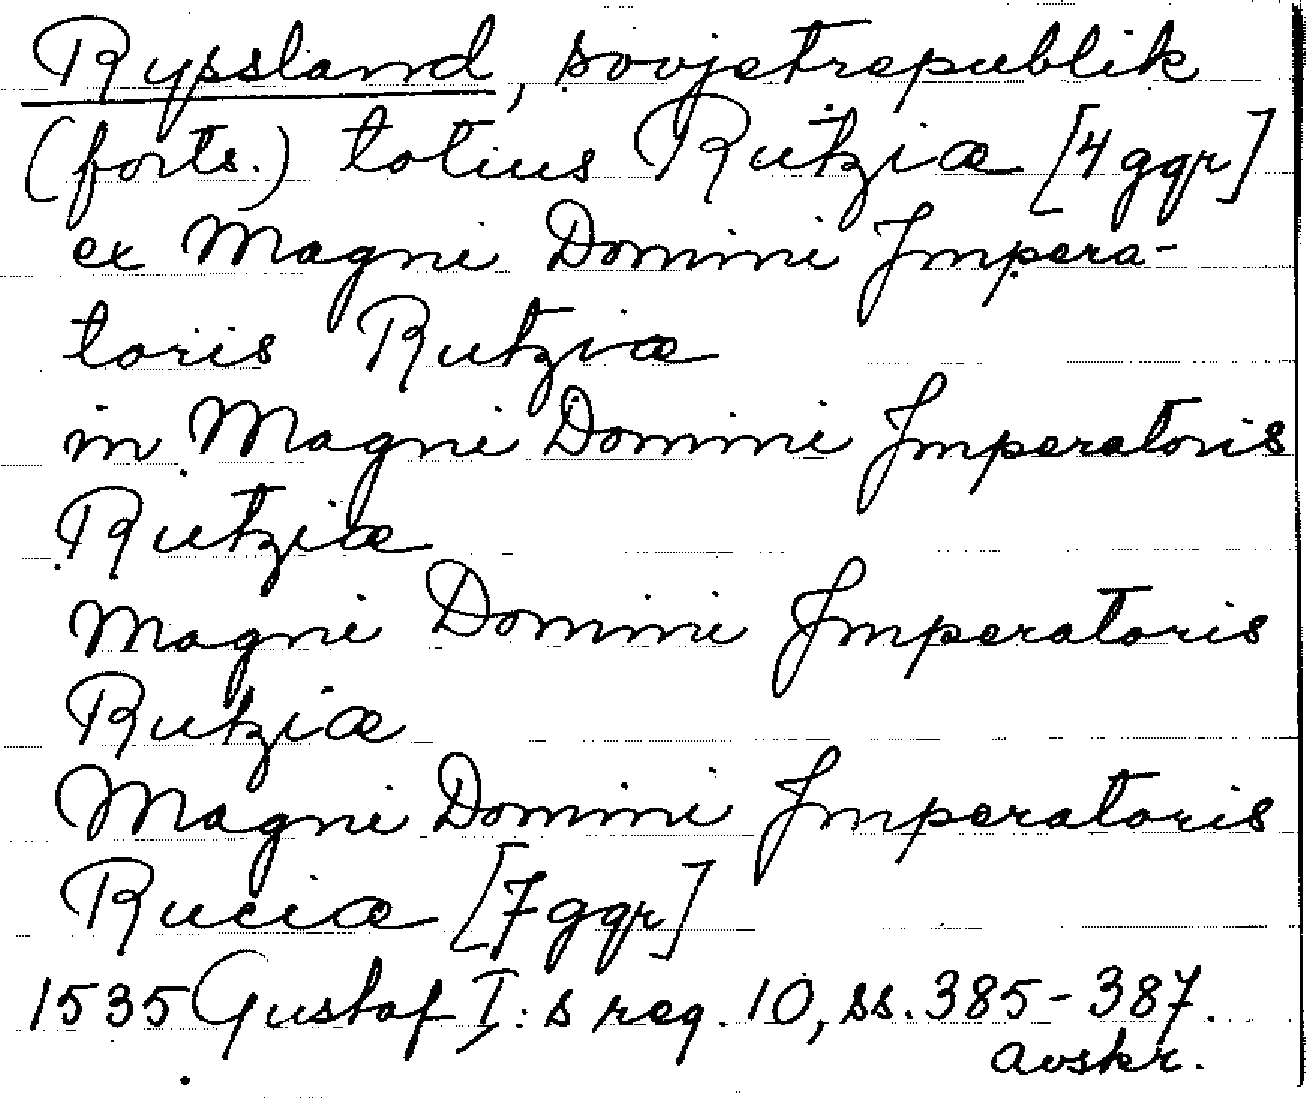 Ryssland, sovjetrepublik
(forts.) totius Rutziæ [4 ggr]
ex Magni Domini Impera-
toris Rutziæ
in Magni Domini Imperatoris
Rutziæ
Magni Domini Imperatoris
Rutziæ
Magni Domini Imperatoris
Ruciæ [7 ggr]
1535 Gustaf I:s reg. 10, ss. 385-387.
avskr.